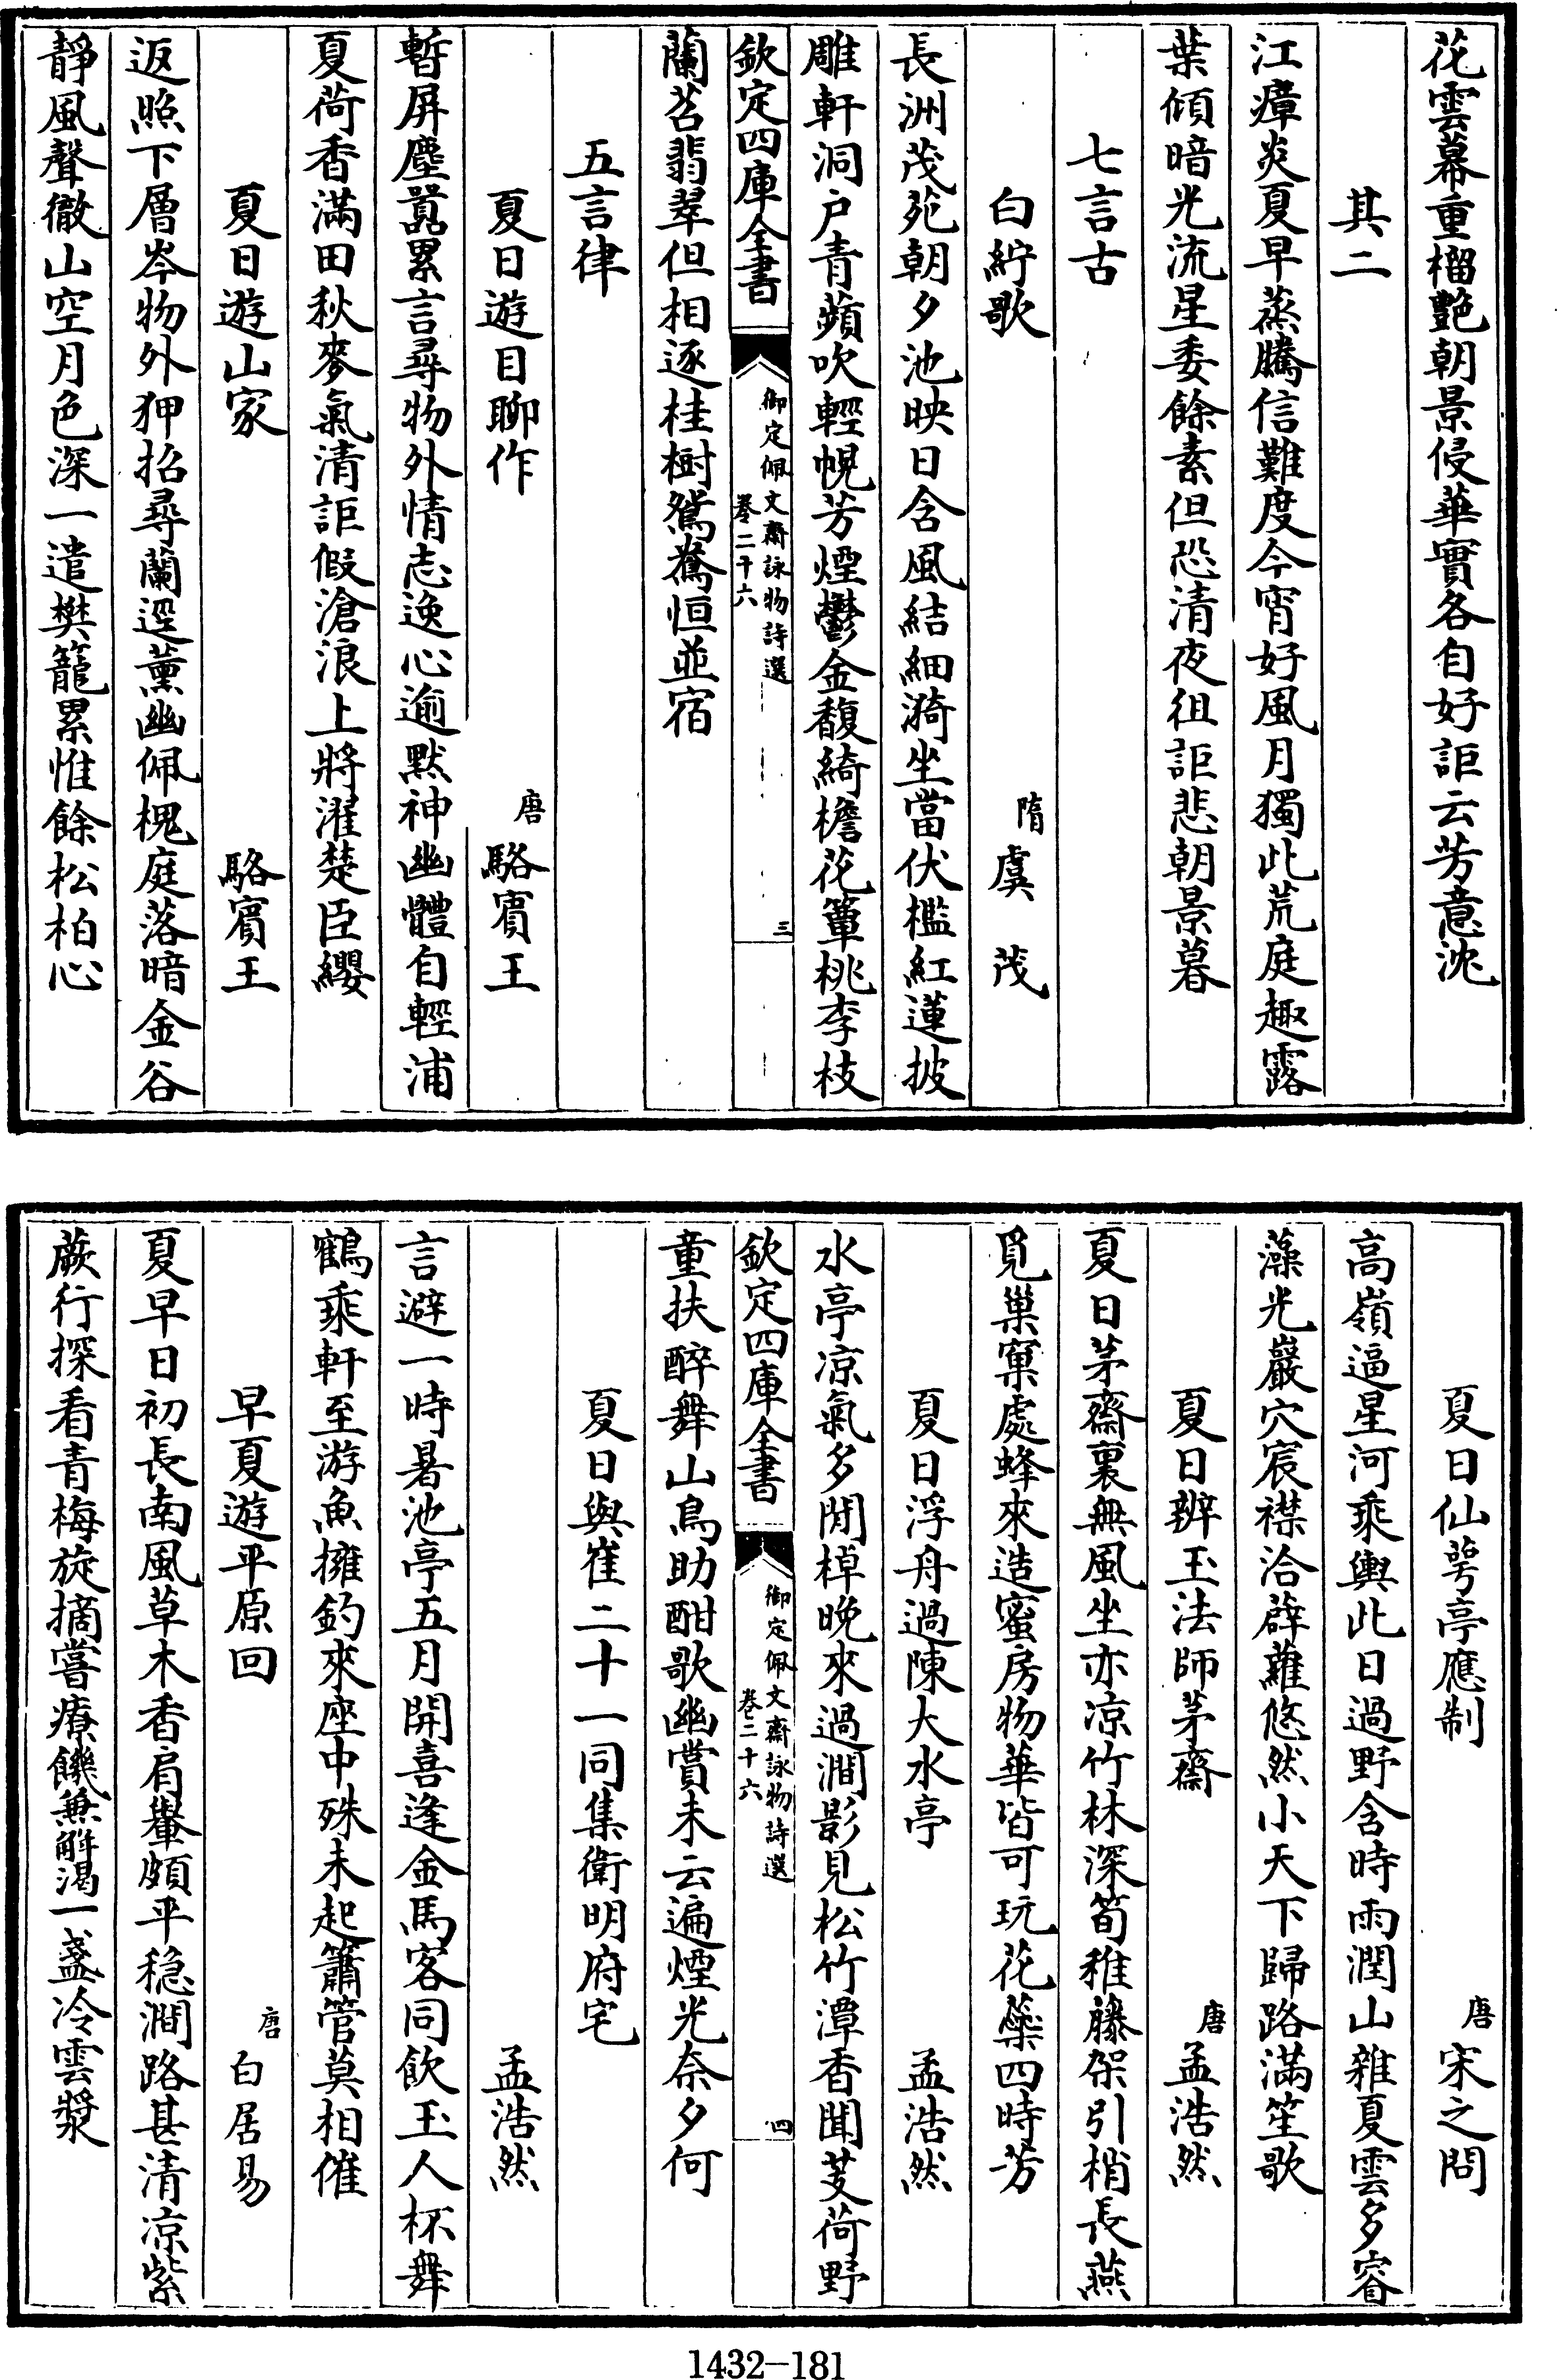 花雲幕重榴艷朝景侵華實各自好詎云芳意沈
其二
江瘴炎夏早蒸騰信難度今宵好風月獨此荒庭趣露
葉傾暗光流星委餘素但恐清夜徂詎悲朝景暮
七言古
白紵歌 隋 虞茂
長洲茂苑朝夕池映日含風結細漪坐當伏檻紅蓮披
雕軒洞戶青蘋吹輕幌芳煙鬱金馥綺檐花簟桃李枝
欽定四庫全書 御定佩文齋詠物詩選 卷二十六 三
蘭苕翡翠但相逐桂樹鴛鴦恒並宿
五言律
夏日遊目聊作 唐 駱賓王
暫屏塵囂累言尋物外情志逸心逾默神幽體自輕浦
夏荷香滿田秋麥氣清詎假滄浪上將濯楚臣纓
夏日遊山家 駱賓王
返照下層岑物外狎招尋蘭逕薰幽佩槐庭落暗金谷
靜風聲徹山空月色深一遣樊籠累惟餘松柏心
夏日仙萼亭應制 唐 宋之問
高嶺逼星河乘輿此日過野含時雨潤山雜夏雲多睿
藻光巖穴宸襟洽薜蘿悠然小天下歸路滿笙歌
夏日辨玉法師茅齋 唐 孟浩然
夏日茅齋裏無風坐亦凉竹林深筍稚藤架引梢長燕
覓巢窠處蜂來造蜜房物華皆可玩花蘂四時芳
夏日浮舟過陳大水亭 孟浩然
水亭凉氣多閒棹晚來過澗影見松竹潭香聞芰荷野
欽定四庫全書 御定佩文齋詠物詩選 卷二十六 四
童扶醉舞山鳥助酣歌幽賞未云遍煙光奈夕何
夏日與崔二十一同集衛明府宅
孟浩然
言避一時暑池亭五月開喜逢金馬客同飲玉人杯舞
鶴乘軒至游魚擁釣來座中殊未起簫管莫相催
早夏遊平原回 唐 白居易
夏早日初長南風草木香肩轝頗平穩澗路甚清凉紫
蕨行探看青梅旋摘嘗療饑兼解渴一盞冷雲漿
1432-181